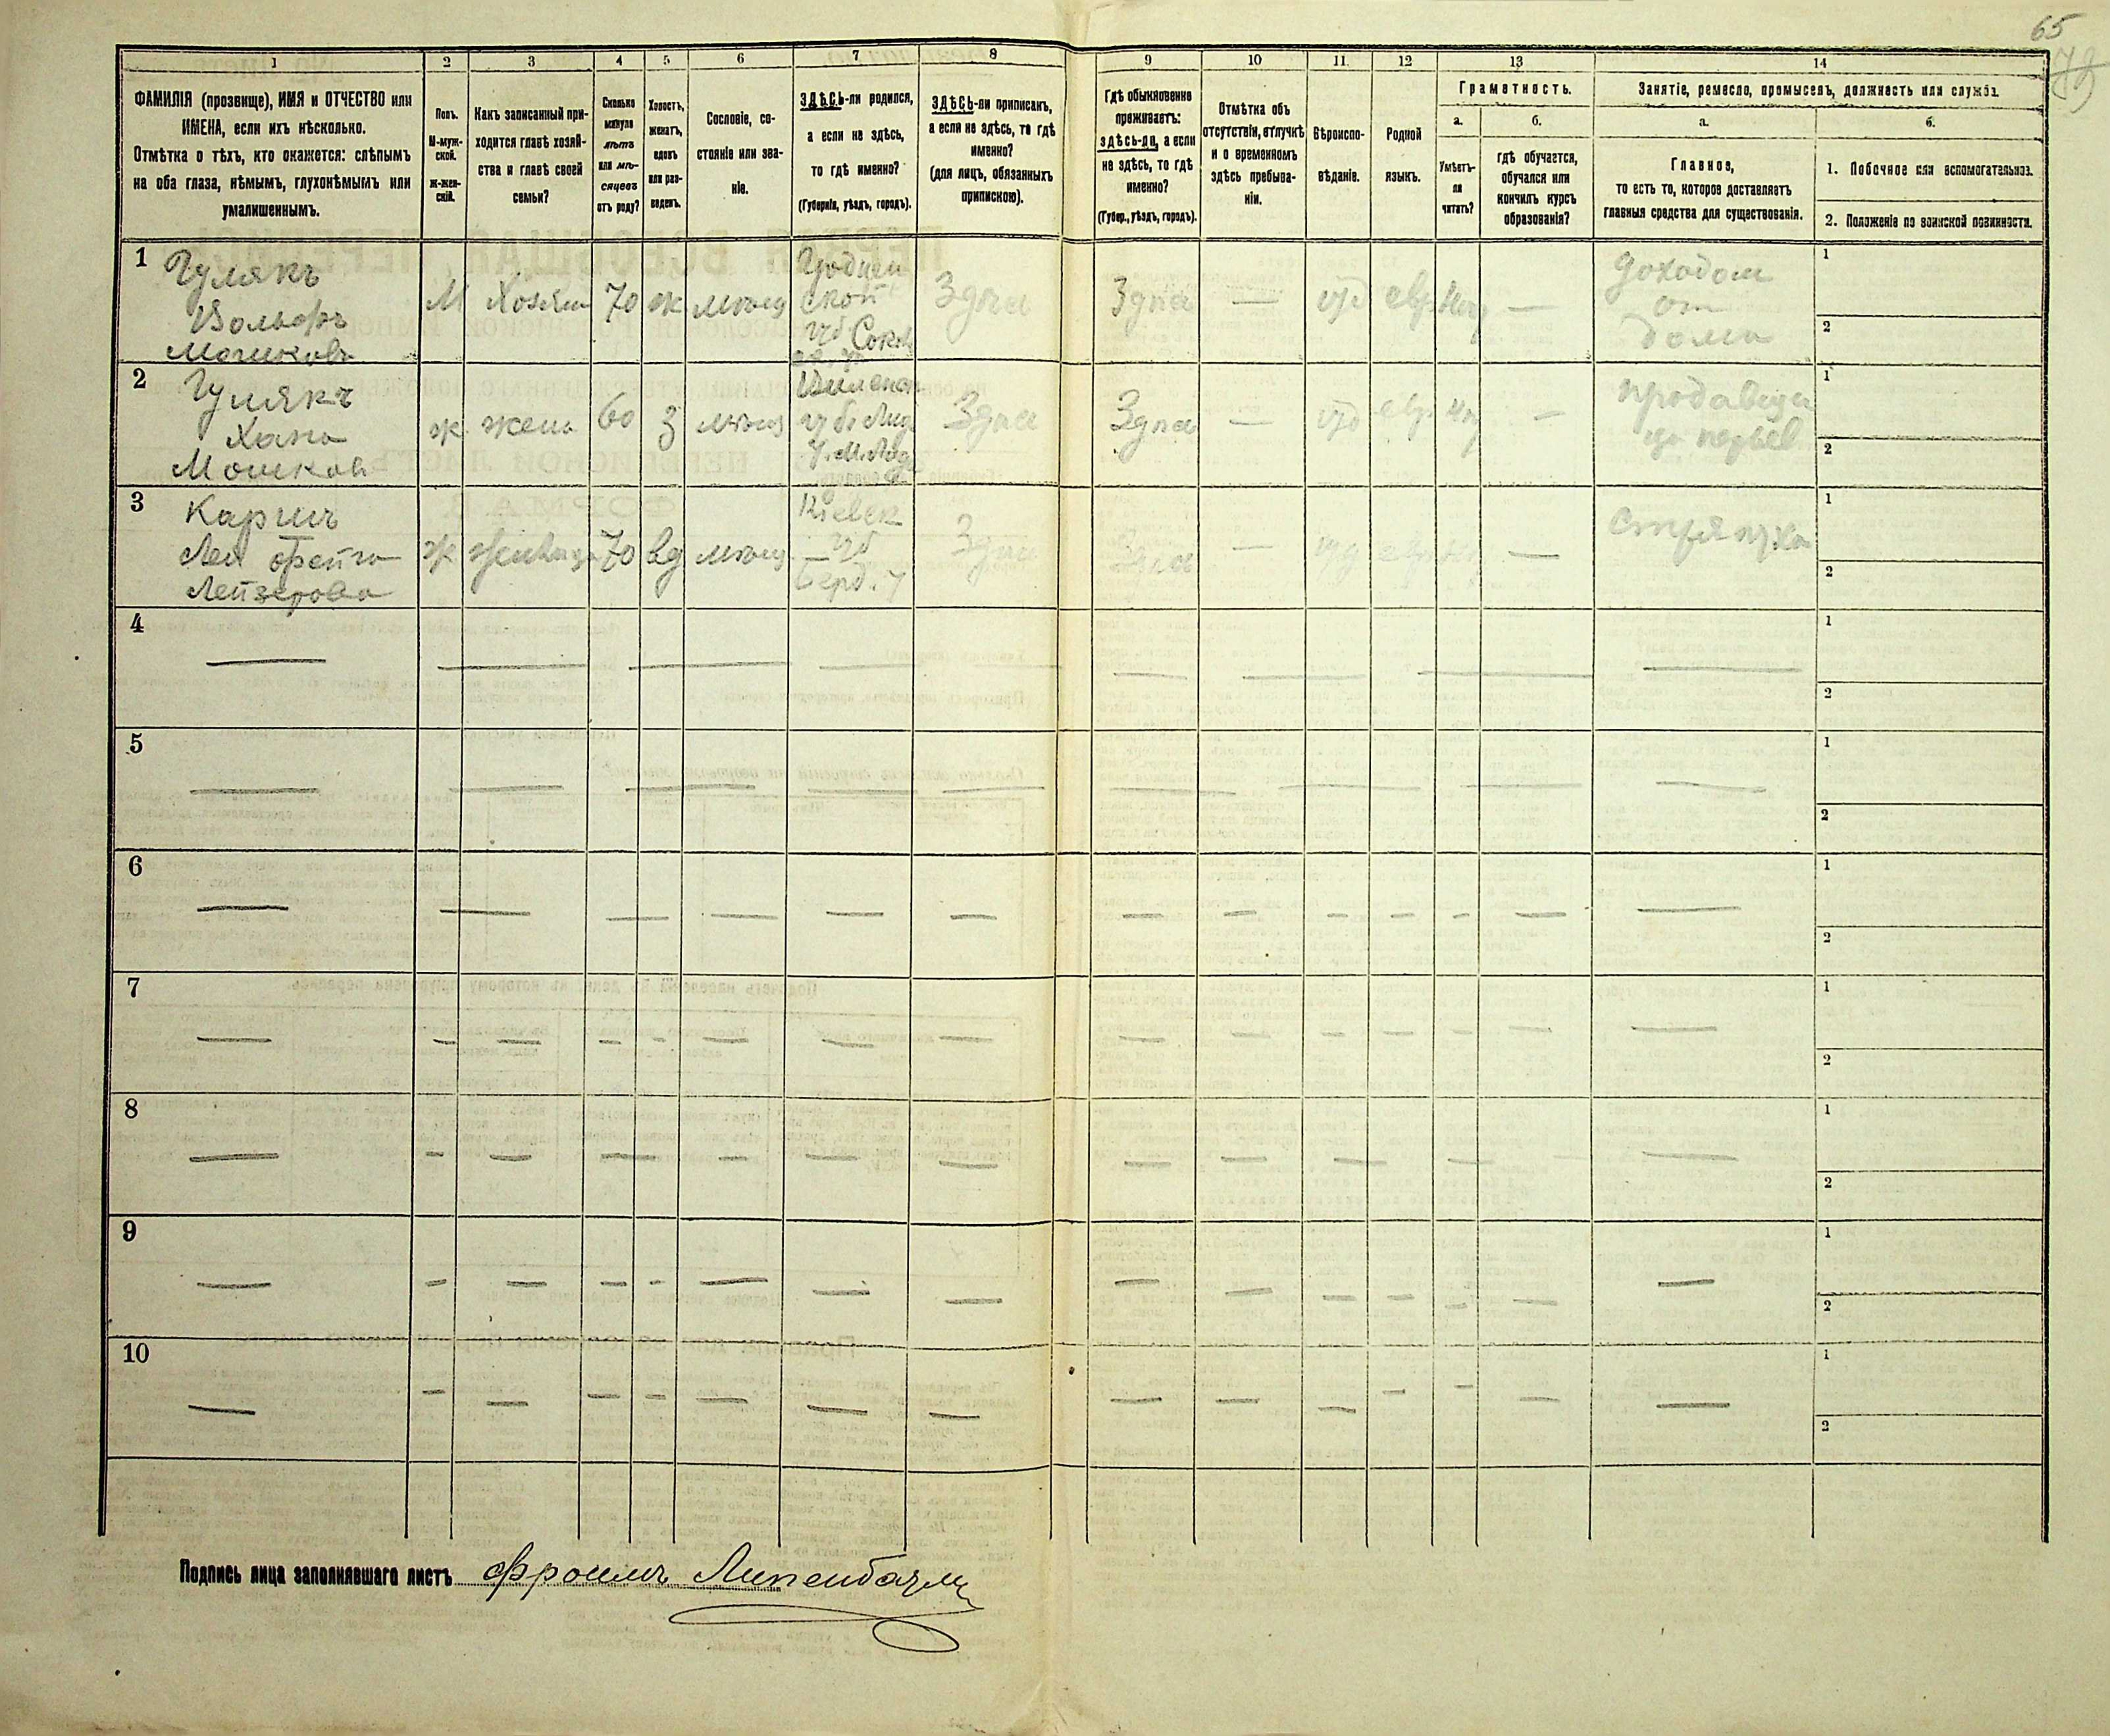 65
1 2 3 4 5 6 7 8 9 10 11. 12 13 14
ФАМИЛІЯ (прозвище), ИМЯ и ОТЧЕСТВО или
ИМЕНА, если ихъ нѣсколько.
Отмѣтка о тѣхъ, кто окажется: слѣпымъ
на оба глаза, нѣмымъ, глухонѣмымъ или
умалишеннымъ.
Полъ.
М-муж-
ской.
Ж-жен-
скій.
Какъ записанный при-
ходится главѣ хозяй-
ства и главѣ своей
семьи?
Сколько
минуло
лѣтъ
или мѣ-
сяцевъ
отъ роду?
Холостъ,
женатъ,
вдовъ
или раз-
веденъ.
Сословіе, со-
стояніе или зва-
ніе.
ЗДѢСЬ-ли родился,
а если не здѣсь,
то гдѣ именно?
(Губернія, уѣздъ, городъ).
ЗДѢСЬ-ли приписанъ,
а если не здѣсь, то гдѣ
именно?
(для лицъ, обязанныхъ
припискою).
Гдѣ обыкновенно
проживаетъ:
здѣсь-ли, а если
не здѣсь, то гдѣ
именно?
(Губер., уѣздъ, городъ).
Отмѣтка объ
отсутствіи, отлучкѣ
и о временномъ
здѣсь пребыва-
ніи.
Вѣроиспо-
вѣданіе.
Родной
языкъ.
Грамотность.
а.
Умѣетъ-
ли
читать?
б.
гдѣ обучается,
обучался или
кончилъ курсъ
образованія?
Занятіе, ремесло, промыселъ, должность или служба.
а.
Главное,
то есть то, которое доставляетъ
главныя средства для существованія.
б.
1. Побочное или вспомогательное.
2. Положеніе по воинской повинности.
1
Гулякъ
Вольфъ
Мошковъ
М
Хозяин
70
ж
мѣщ
Гроднен
ской
губ Сокол
Здѣсь
Здѣсь
—
іуд
евр
Нет
—
доходом
от
дома
1
2
2
Гулякъ
Хана
Мошков
ж
жена
60
З
мѣщ
Виленск
губ. Лид
Здѣсь
Здѣсь
—
іуд
евр
—
1
2
3
Лея Фейга
Лейзерова
ж
70
вд
мѣщ
Кіевск
губ
Берд. у
Здѣсь
Здѣсь
—
іуд
—
стряпуха
1
2
4
1
2
5
1
2
6
1
2
7
1
2
8
1
2
9
1
2
10
1
2
Подпись лица заполнявшаго листъ Фроимъ